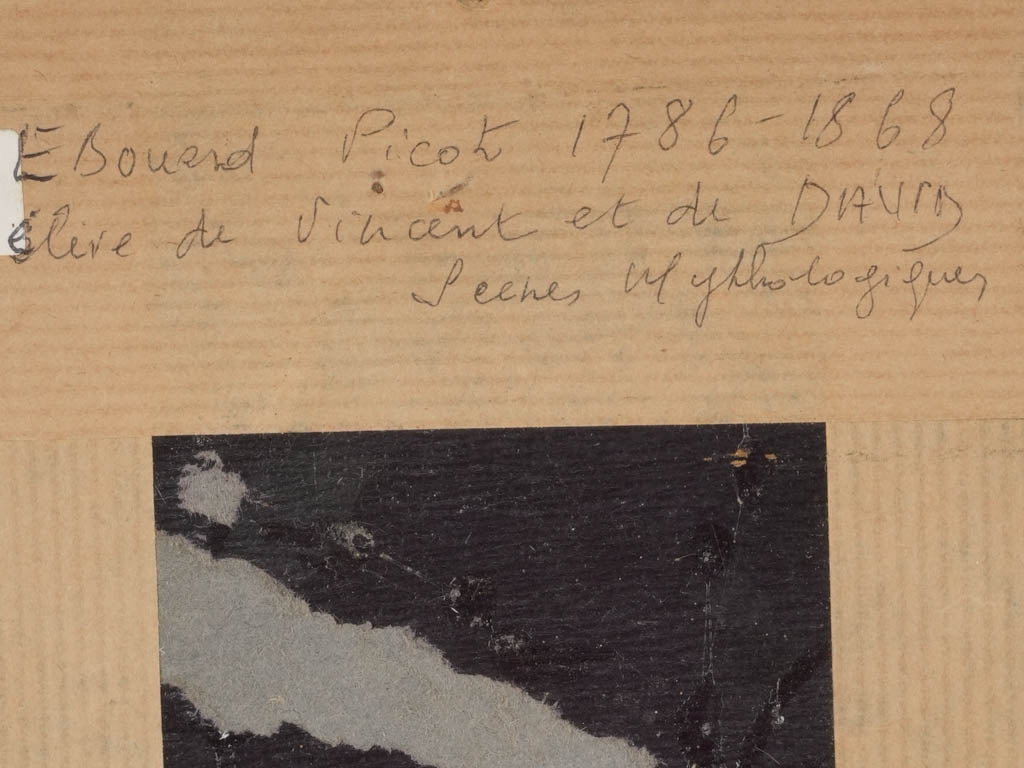 EDouard Picot 1786-1868
élève de Vincent et de DAVID
Scenes Mythologiques